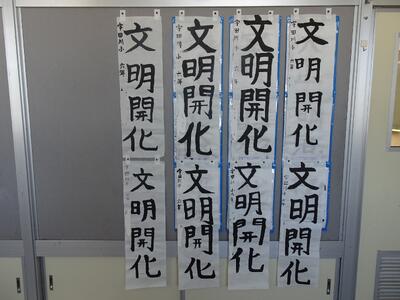 文明開化
宇田川小 六年
文明開化
宇田川小 六年
文明開化
宇田川小 六年
文明開化
宇田川小 六年
文明開化
文明開化
文明開化
文明開化